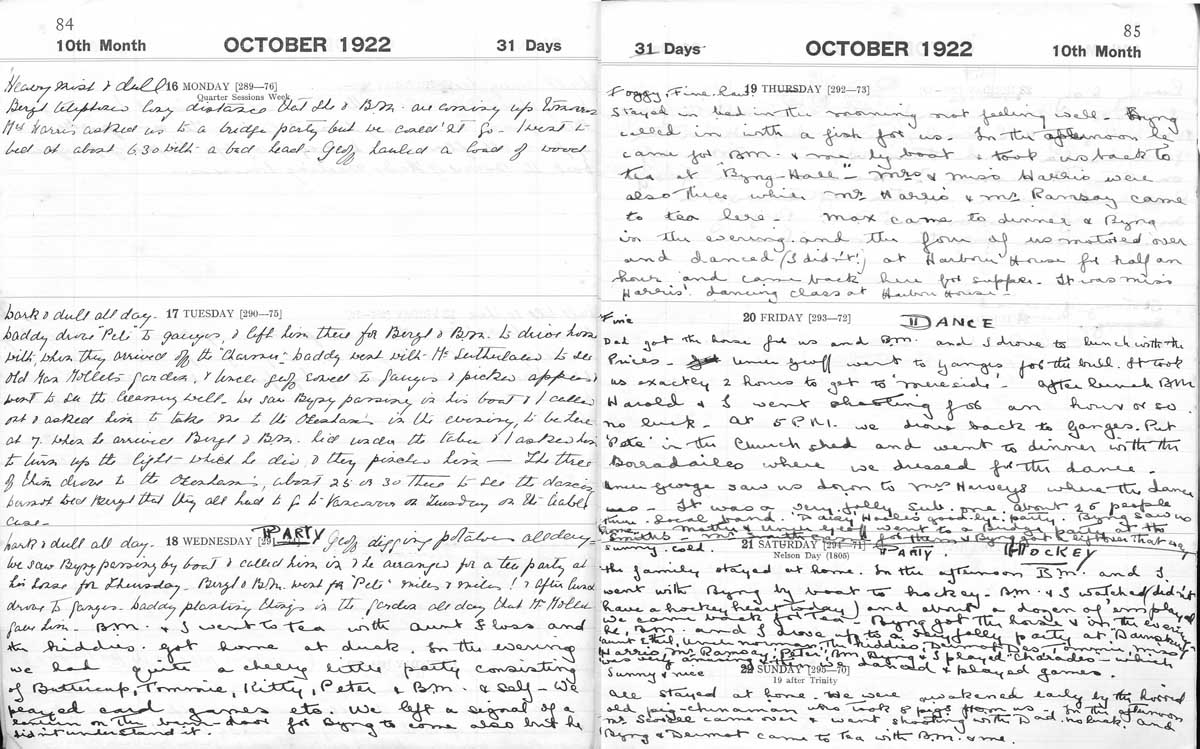 84
10th Month OCTOBER 1922 31 Days
Heavy mist & dull 16 MONDAY [289—76]
Quarter Sessions Week
Beryl telephoned long distance that she & B.M. are coming up tomorrow
Mrs Harris asked us to a bridge party but we could'nt go - I went to
bed at about 6.30 with a bad head - Geoff hauled a load of wood
Dark & dull all day. 17 TUESDAY [290—75]
Daddy drove "Pete" to Ganges, & left him there for Beryl & B.M. to drive home
with, when they arrived off the "Charmer". Daddy went with Mr to see
Old Man Mollets garden, & Uncle Geoff to Ganges & picked apples &
went to see the well. We saw Byng passing in his boat & I called
out & asked him to take me to the in the evening, to be here
at 7. When he arrived Beryl & B.M. hid under the table & I asked him
to turn up the light - which he did & they pinched him — The three
of them drove to the , about 25 or 30 there to see the dancing
told Beryl that they all had to go to Vancouver on Tuesday on the
case -
Dark & dull all day. 18 WEDNESDAY [29 PARTY Geoff digging potatoes all day -
We saw Byng passing by boat & called him in & he arranged for a tea party at
his house for Thursday. Beryl & B.M. went for "Pete" miles & miles! & after lunch
drove to Ganges. Daddy planting things in the garden all day that Mr Mollet
gave him. B.M. & I went to tea with Aunt and
the kiddies. got home at dusk. In the evening
we had quite a cheery little party consisting
of Buttercup, Tommie, Kitty, Peter & B.M. & self - We
played card games etc. We left a signal of a
lantern on the door for Byng to come also but he
didn't understand it.
85
31 Days OCTOBER 1922 10th Month
Foggy, Fine later 19 THURSDAY [292—73]
Stayed in bed in the morning not feeling well. Byng
called in with a fish for us. In the afternoon he
came for B.M. & me by boat & took us back to
tea at "Byng-Hall" - Mrs & Miss Harris were
also there while Mr Harris & Mr Ramsay came
to tea here - Max came to dinner & Byng
in the evening. and the four of us motored over
and danced (I didn't!) at Harbour House for half an
hour and came back here for supper. It was Miss
Harris' dancing class at Harbour House -
Fine 20 FRIDAY [293—72] DANCE
Dad got the horse for us and B.M. and I drove to lunch with the
Prices - Uncle Geoff went to Ganges for the mail. It took
us exactly 2 hours to get to "Mereside". After lunch B.M.
Harold & I went shooting for an hour or so.
no luck. At 5 P.M. we drove back to Ganges. Put
"Pete" in the Church shed and went to dinner with the
Borradailes where we dressed for the dance.
Uncle George saw us down to Mrs Harveys where the dance
was - It was a very jolly sub. one. about 25 people
there. Local band. Daisy good-bye party. Byng saw us
home. Mother & Uncle Geoff went to a party at the
Smiths - Mr for them & Byng
Sunny. cold. 21 SATURDAY [294—71] PARTY HOCKEY
Nelson Day (1805)
The family stayed at home. In the afternoon B.M. and I
went with Byng by boat to hockey - B.M. & I watched (didn't
have a hockey heart today) and about a dozen of 'em played
We came back for tea - Byng got the horse & in the evening
he, B.M. and I drove up to a very jolly party at
Aunt Ethel, Uncle the kiddies, Dermot, Des, Tommie, Miss
Harris, Mr Ramsay, Peter, B.M. Byng & I played "Charades" which
was very & danced & played games.
Sunny & nice 22 SUNDAY [295—70]
19 after Trinity
All stayed at home. We were awakened early by the horrid
old pig-chinaman who took 8 pigs from us - In the afternoon
Mr came over & went shooting with Dad. no luck. and
Byng & Dermot came to tea with B.M. & me.